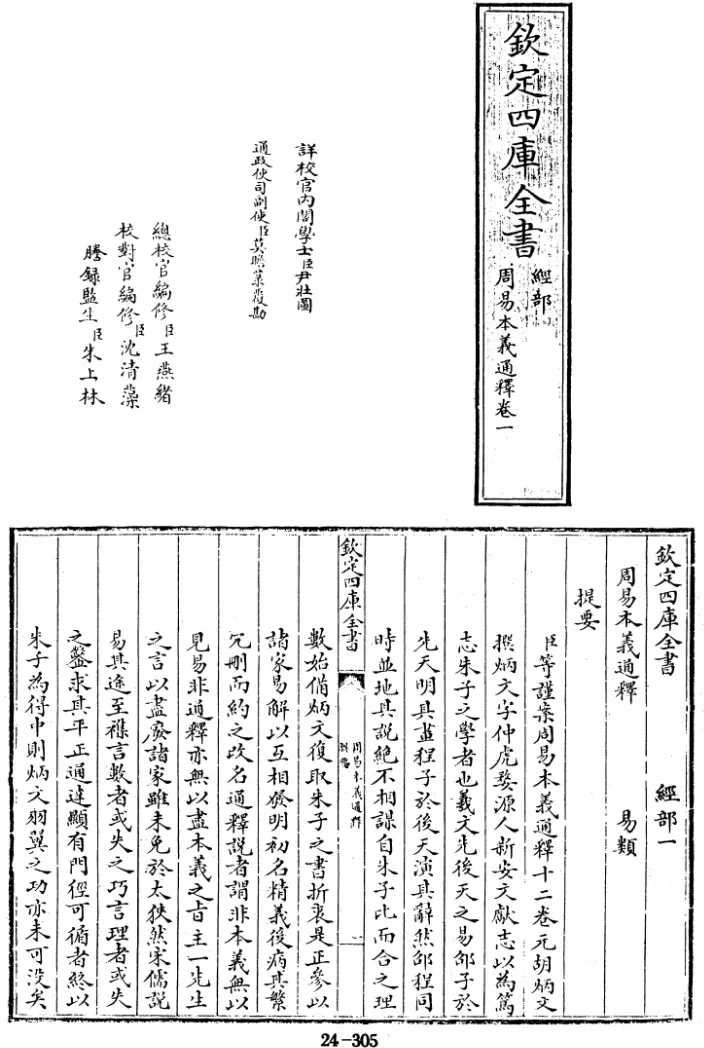 欽定四庫全書
經部
周易本義通釋卷一
詳校官內閣學士臣尹壯圖
通政使司副使臣莫瞻菉覆勘
總校官編修臣王燕緒
校對官編修臣沈清藻
謄錄監生臣朱上林
欽定四庫全書 經部一
周易本義通釋 易類
提要
臣等謹案周易本義通釋十二卷元胡炳文
撰炳文字仲虎婺源人新安文獻志以為篤
志朱子之學者也羲文先後天之易邵子於
先天明其畫程子於後天演其辭然邵程同
時並地其說絶不相謀自朱子比而合之理
欽定四庫全書
周易本義通釋
提要
一
數始備炳文復取朱子之書折衷是正參以
諸家易解以互相發明初名精義後病其繁
冗刪而約之改名通釋說者謂非本義無以
見易非通釋亦無以盡本義之旨主一先生
之言以盡廢諸家雖未免於太狹然宋儒說
易其途至襍言數者或失之巧言理者或失
之鑿求其平正通達顯有門徑可循者終以
朱子為得中則炳文羽翼之功亦未可沒矣
24-305